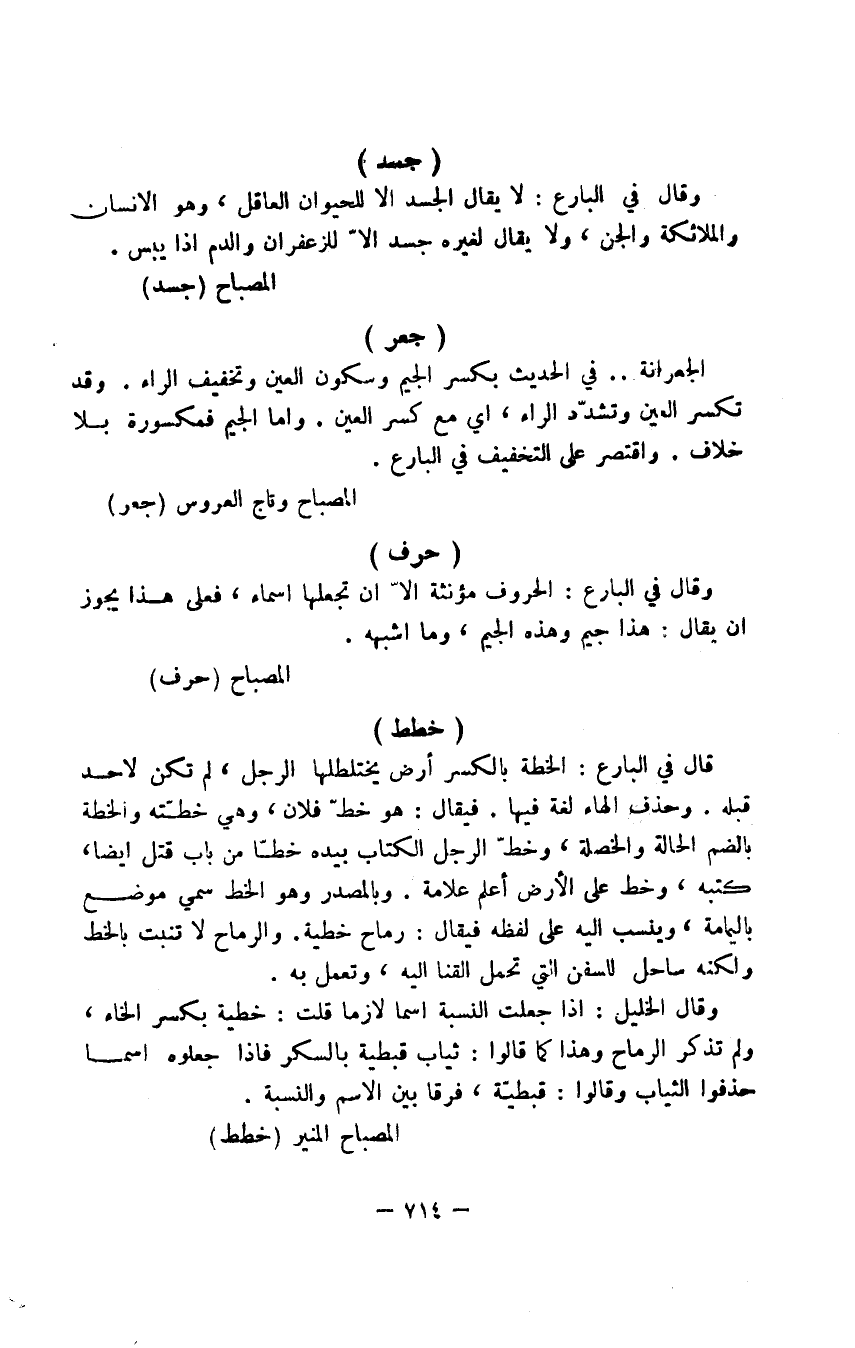 ( جسد )
وقال في البارع : لا يقال الجسد الا للحيوان العاقل ، وهو الانسان
والملائكة والجن ، ولا يقال لغيره جسد الاّ للزعفران والدم اذا يبس .
المصباح (جسد)
( جعر )
الجعرانة .. في الحديث بكسر الجيم وسكون العين وتخفيف الراء . وقد
تكسر العين وتشدّد الراء ، اي مع كسر العين . واما الجيم فمكسورة بــلا
خلاف . واقتصر على التخفيف في البارع .
المصباح وتاج العروس (جعر)
( حرف )
وقال في البارع : الحروف مؤنثة الاّ ان تجعلها اسماء ، فعلى هــذا يجوز
ان يقال : هذا جيم وهذه الجيم ، وما اشبهه .
المصباح (حرف)
( خطط )
قال في البارع : الخطة بالكسر أرض يختلطلها الرجل ، لم تكن لاحــد
قبله . وحذف الهاء لغة فيها . فيقال : هو خطّ فلان ، وهي خطـّته والخطة
بالضم الحالة والخصلة ، وخطّ الرجل الكتاب بيده خطـّا من باب قتل ايضا،
كتبه ، وخط على الأرض أعلم علامة . وبالمصدر وهو الخط سمي موضــع
باليمامة ، وينسب اليه على لفظه فيقال : رماح خطية. والرماح لا تنبت بالخط
ولكنه ساحل للسفن التي تحمل القنا اليه ، وتعمل به .
وقال الخليل : اذا جعلت النسبة اسما لازما قلت : خطية بكسر الخاء ،
ولم تذكر الرماح وهذا كما قالوا : ثياب قبطية بالسكر فاذا جعلوه اسمــا
حذفوا الثياب وقالوا : قبطيّة ، فرقا بين الاسم والنسبة .
المصباح المنير (خطط)
– ٧١٤ –